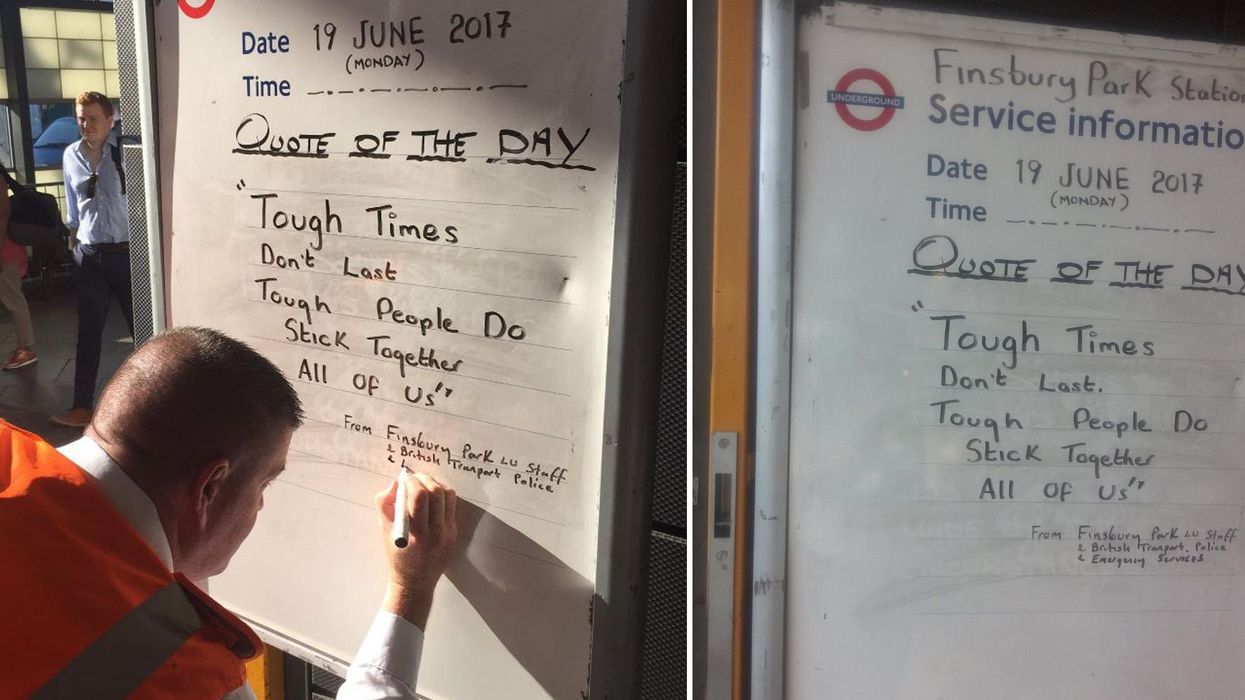 Date 19 JUNE 2017
(MONDAY)
Time
QUOTE OF THE DAY
"Tough Times
Don't Last
Tough People Do
Stick Together
All Of Us"
From Finsbury Park LU Staff
& British Tranport Police
&
Finsbury Park Station
UNDERGROUND
Service informatio
Date 19 JUNE 2017
(MONDAY)
Time
QUOTE OF THE DAY
"Tough Times
Don't Last.
Tough People Do
Stick Together
All Of Us"
From Finsbury Park LU Staff
& British Tranport Police
& Emergency Services